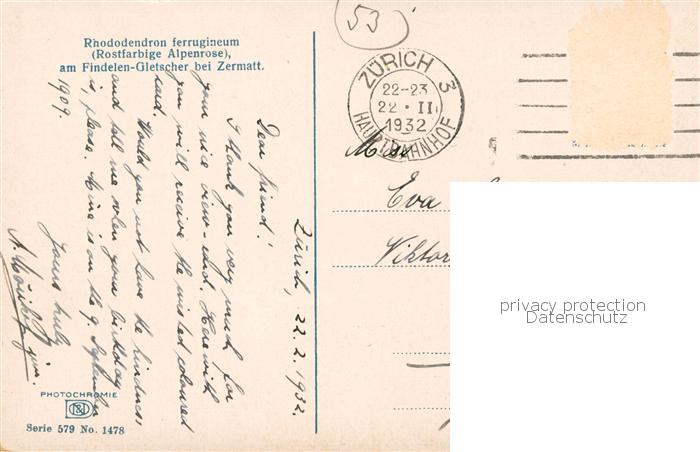 53
Rhododendron ferrugineum
(Rostfarbige Alpenrose),
am Findelen-Gletscher bei Zermatt.
ZÜRICH 3
22-23
22·II
1932
HAUPTBAHNHOF
Miss
Eva
Viktor
privacy protection
Datenschutz
Zürich, 22.2.1932.
Dear friend!
I thank you very much for
your nice view-card. Herewith
you will receive the wished coloured
card.
Would you not have the kindness
and tell me when your birthday
is, please. Mine is on the 9. September
1909.
Yours truly
PHOTOCHROMIE
Serie 579 No. 1478